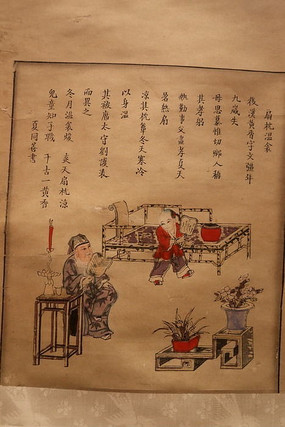 扇枕溫衾
後漢黃香字文彊年
九歲失
母思慕惟切鄉人稱
其孝躬
執勤事父盡孝夏天
暑熱扇
涼其枕蓆冬天寒冷
以身溫
其被席太守劉護表
而異之
冬月溫衾煖 炎天扇枕涼
兒童知子職 千古一黃香
夏同善書